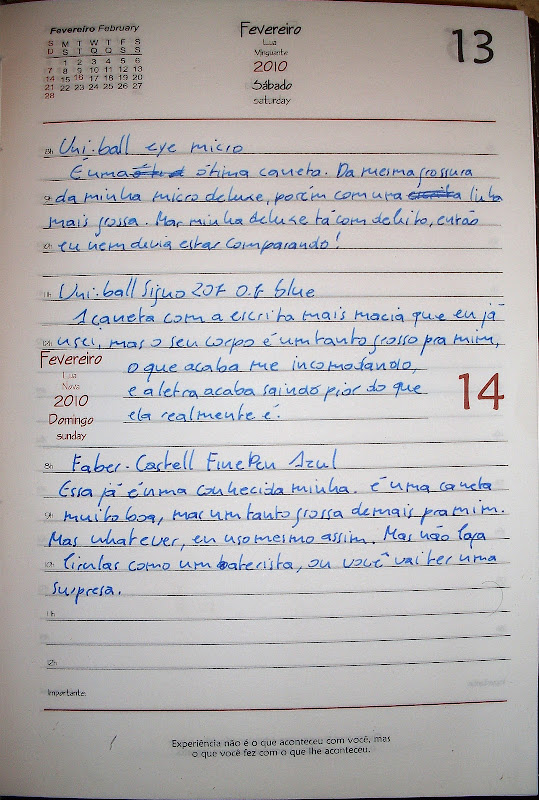 Fevereiro February
S M T W T F S
D S T Q Q S S
1 2 3 4 5 6
7 8 9 10 11 12 13
14 15 16 17 18 19 20
21 22 23 24 25 26 27
28
Fevereiro
Lua
Minguante
2010
Sábado
saturday
13
8h Uni-ball eye micro
É uma ótima caneta. Da mesma grossura
9h da minha micro deluxe, porém com uma escrita linha
mais grossa. Mas minha deluxe tá com defeito, então
10h eu nem devia estar comparando!
11h Uni-ball Signo 207 0.7 blue
A caneta com a escrita mais macia que eu já
12h usei, mas o seu corpo é um tanto grosso pra mim,
Fevereiro
Lua
Nova
2010
Domingo
sunday
o que acaba me incomodando,
e a letra acaba saindo pior do que
ela realmente é.
14
8h Faber-Castell FinePen Azul
Essa já é uma conhecida minha. é uma caneta
9h muito boa, mas um tanto grossa demais pra mim.
Mas whatever, eu uso mesmo assim. Mas não faça
10h firulas como um baterista, ou você vai ter uma
surpresa.
11h
12h
Importante:
Experiência não é o que aconteceu com você, mas
o que você fez com o que lhe aconteceu.